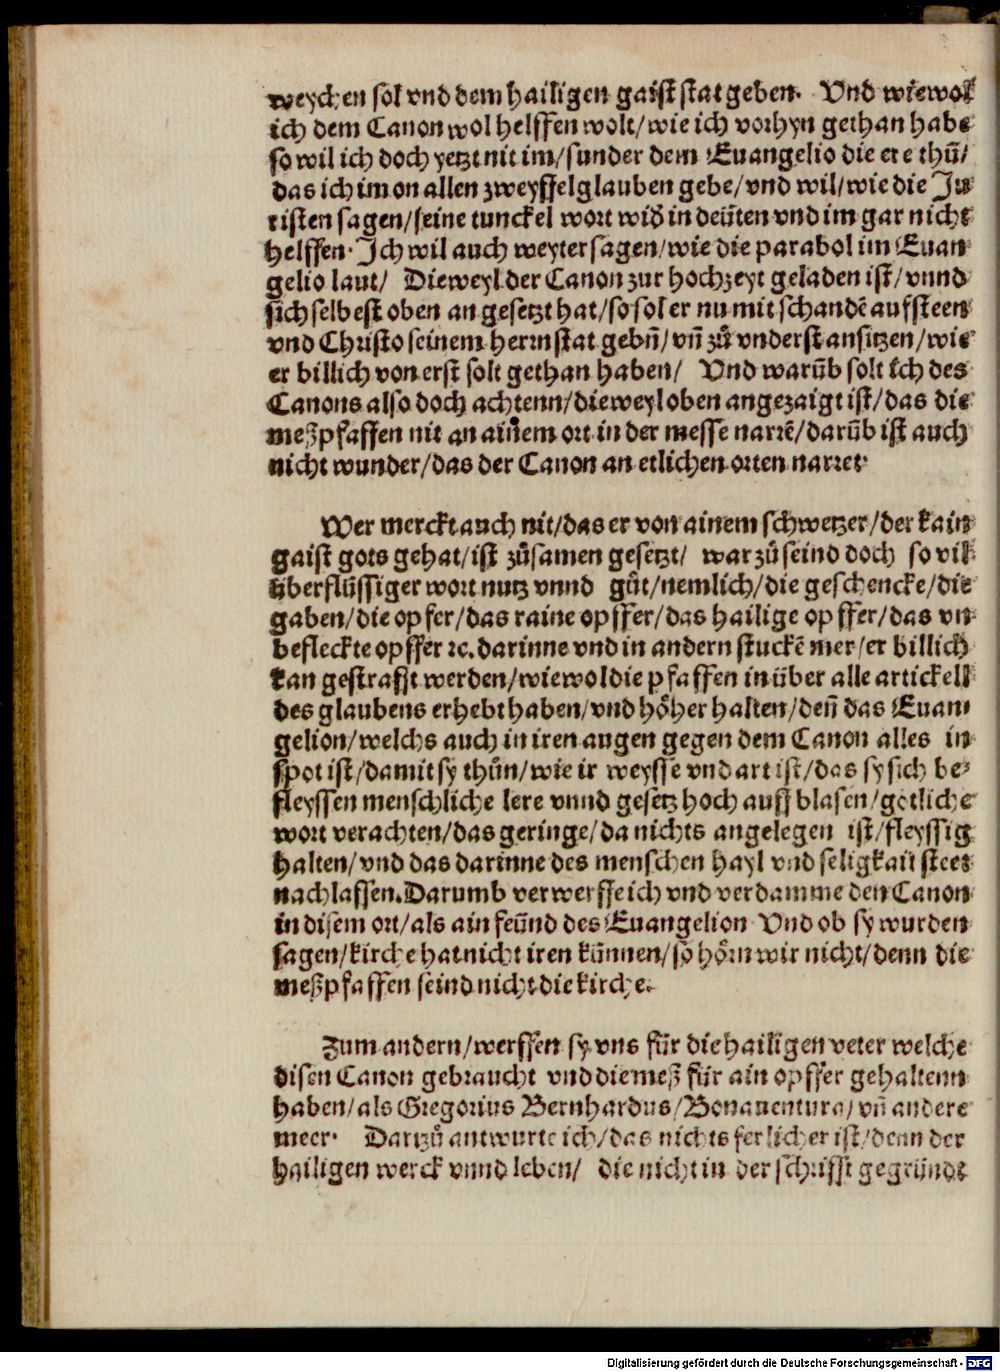 weychen sol vnd dem hailigen gaist stat geben. Vnd wiewol
ich dem Canon wol helffen wolt/wie ich vorhyn gethan habe
so wil ich doch yetzt nit im/sunder dem Euangelio die ere thuͦ/
das ich im on allen zweyffel glauben gebe/vnd wil/wie die Ju
risten sagen/seine tunckel wort wid̕ in deüten vnd im gar nicht
helffen. Ich wil auch weyter sagen/wie die parabol im Euan
gelio laut/ Dieweyl der Canon zur hochzeyt geladen ist/vnnd
sich selbest oben an gesetzt hat/so sol er nu mit schandē aufsteen
vnd Christo seinem herrn stat gebn̄/vn̄ zuͦ vnderst an sitzen/wie
er billich von erst solt gethan haben/ Vnd warūb solt ich des
Canons also doch achtenn/dieweyl oben angezaigt ist/das die
meßpfaffen nit an ainem ort in der messe narrē/darūb ist auch
nicht wunder/das der Canon an etlichen orten narret.
Wer merckt auch nit/das er von ainem schwetzer/der kain
gaist gots gehat/ist zuͦsamen gesetzt/ war zuͦ seind doch so vil
überflüssiger wort nutz vnnd guͦt/nemlich/die geschencke/die
gaben/die opfer/das raine opffer/das hailige opffer/das vn
befleckte opffer ꝛc. darinne vnd in andern stuckē mer/er billich
kan gestrafft werden/wiewol die pfaffen in über alle artickell
des glaubens erhebt haben/vnd hoͤher halten/den̄ das Euan
gelion/welchs auch in iren augen gegen dem Canon alles in
spot ist/damit sy thuͦn/wie ir weysse vnd art ist/das sy sich be-
fleyssen menschliche lere vnnd gesetz hoch auff blasen/gotliche
wort verachten/das geringe/da nichts angelegen ist/fleyssig
halten/vnd das darinne des menschen hayl vnd seligkait steet
nachlassen. Darumb verwerffe ich vnd verdamme den Canon
in disem ort/als ain feünd des Euangelion Vnd ob sy wurden
sagen/kirche hat nicht iren künnen/so hoͤrn wir nicht/denn die
meßpfaffen seind nicht die kirche.
Zum andern/werffen sy vns für die hailigen veter welche
disen Canon gebraucht vnd die meß für ain opffer gehaltenn
haben/als Gregorius Bernhardus/Bonauentura/vn̄ andere
meer. Dartzuͦ antwurte ich/das nichts ferlicher ist/denn der
hailigen werck vnnd leben/ die nicht in der schrifft gegründt
Digitalisierung gefördert durch die Deutsche Forschungsgemeinschaft - DFG